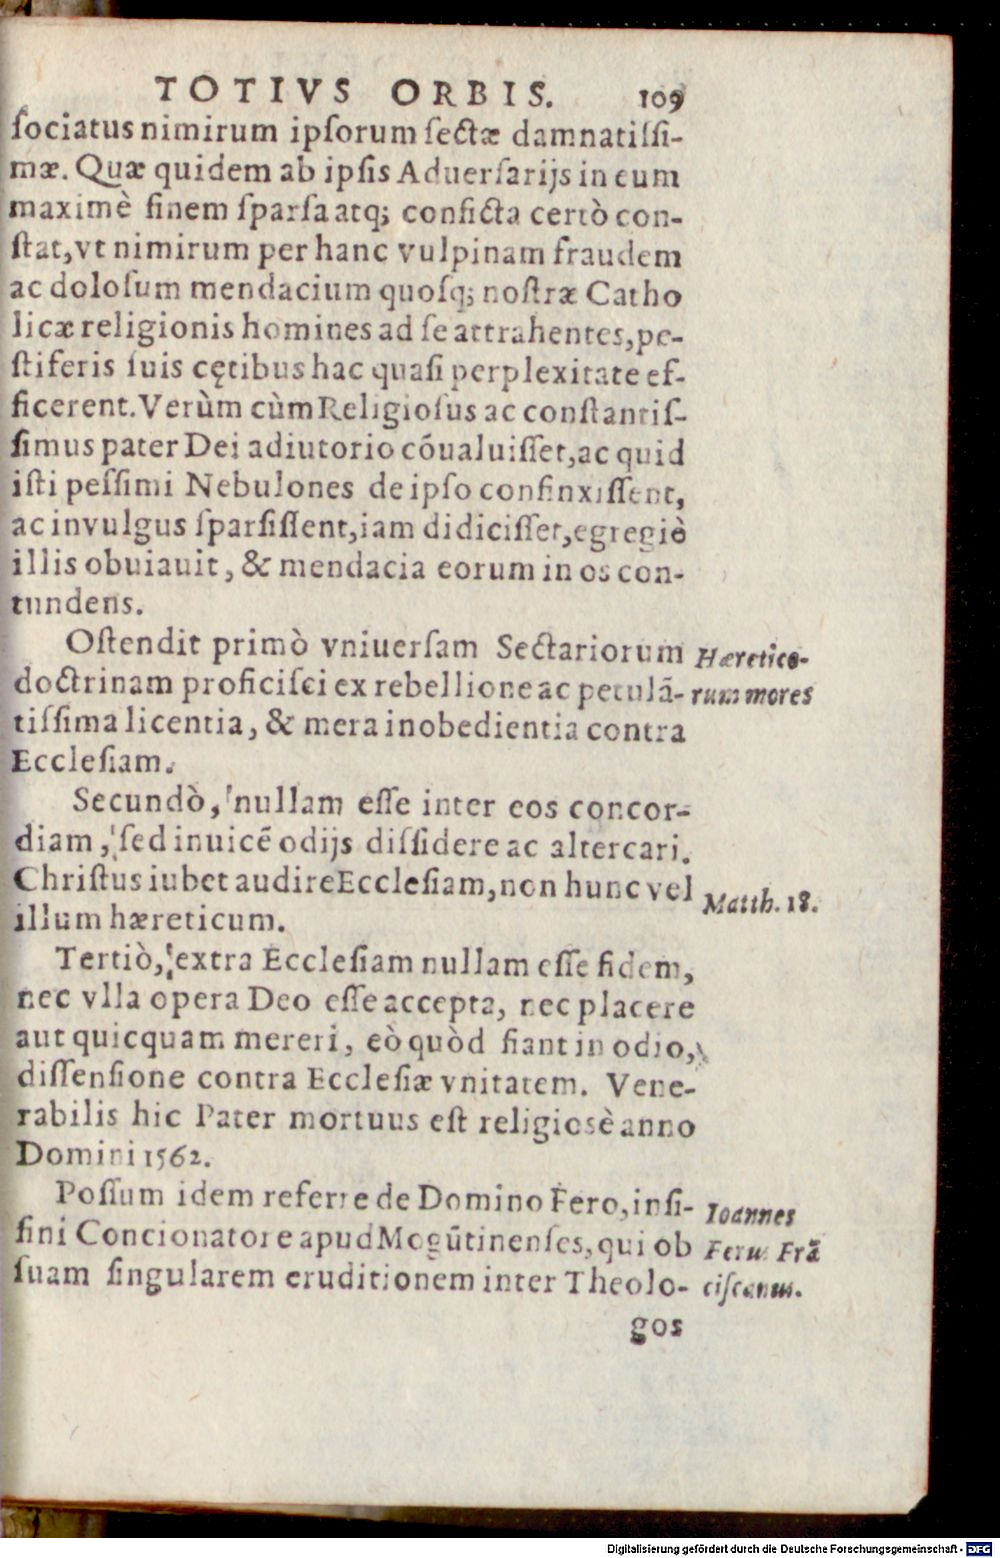 TOTIVS ORBIS. 109
ſociatus nimirum ipſorum ſectæ damnatiſſi-
mæ. Quæ quidem ab ipſis Aduerſarijs in eum
maximè finem ſparſa atq; conficta certò con-
ſtat, vt nimirum per hanc vulpinam fraudem
ac doloſum mendacium quoſq; noſtræ Catho
licæ religionis homines ad ſe attrahentes, pe-
ſtiferis ſuis cętibus hac quaſi perplexitate ef-
ficerent. Verùm cùm Religioſus ac conſtantiſ-
ſimus pater Dei adiutorio cõualuiſſet, ac quid
iſti peſſimi Nebulones de ipſo confinxiſſent,
ac in vulgus ſparſiſſent, iam didiciſſet, egregiè
illis obuiauit, & mendacia eorum in os con-
tundens.
Oſtendit primò vniuerſam Sectariorum
Hæretico-
doctrinam proficiſci ex rebellione ac petulã-
rum mores
tiſſima licentia, & mera inobedientia contra
Eccleſiam.
Secundò, nullam eſſe inter eos concor-
diam, ſed inuicẽ odijs diſſidere ac altercari.
Chriſtus iubet audire Eccleſiam, non hunc vel
Matth. 18.
illum hæreticum.
Tertiò, extra Eccleſiam nullam eſſe fidem,
nec vlla opera Deo eſſe accepta, nec placere
aut quicquam mereri, eò quòd fiant in odio,
diſſenſione contra Eccleſiæ vnitatem. Vene-
rabilis hic Pater mortuus eſt religiosè anno
Domini 1562.
Poſſum idem referre de Domino Fero, inſi-
Ioannes
ſini Concionatore apud Mogũtinenſes, qui ob
Ferus Frã
ſuam ſingularem eruditionem inter Theolo-
ciſcanus.
gos
Digitalisierung gefördert durch die Deutsche Forschungsgemeinschaft - DFG